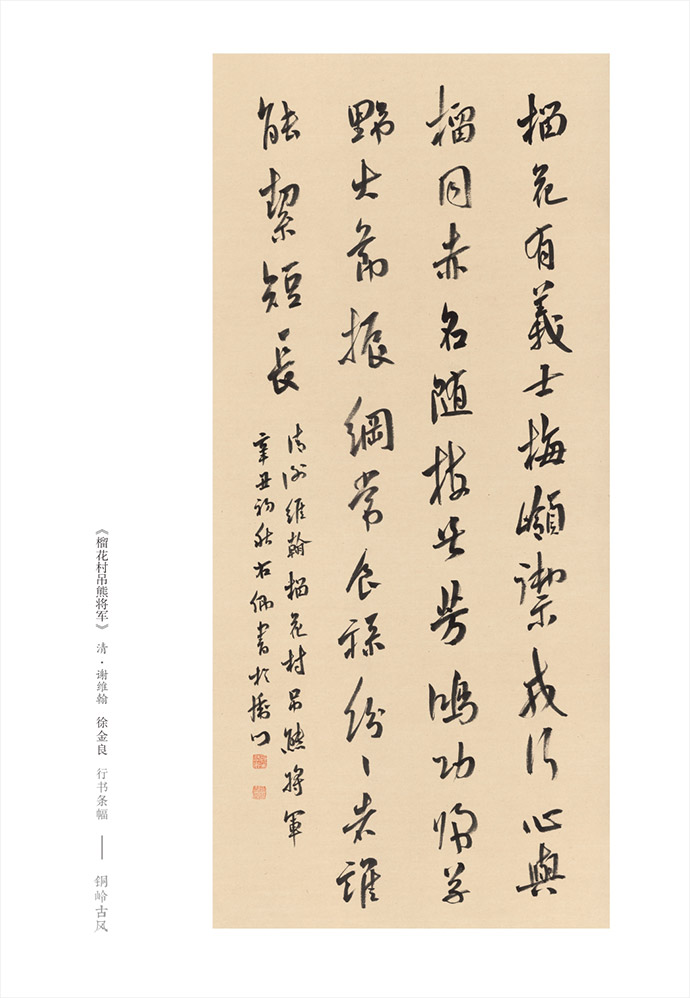 榴花有義士梅嶺禦戎行心與
榴同赤名随枝芳鴻功歸草
野大節振綱常食祿紛〻者誰
能絜短長
清謝維翰榴花村吊熊將軍
辛丑初秋右書於
《榴花村吊熊将军》 清·谢维翰 徐金良 行书条幅 —— 铜岭古风